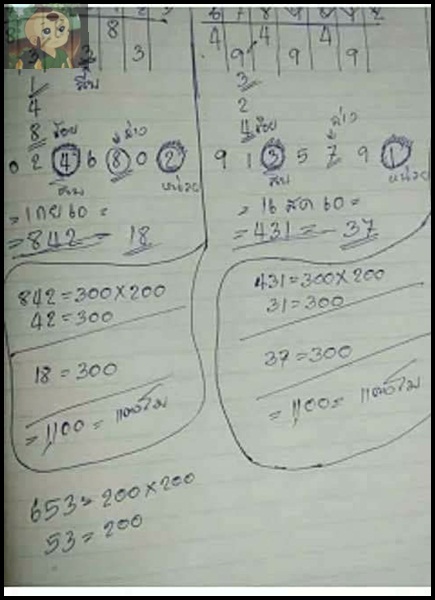 8
3 3 3
1 สิบ
4
8 ร้อย ล่าง
0 2 4 6 8 0 2
สิบ หน่วย
= 1 กย 60 =
= 842 = 18
842 = 300 X 200
42 = 300
18 = 300
= 1,100 =
653 = 200 X 200
53 = 200
4 4 4
9 9 9
3
2
4 ร้อย ล่าง
9 1 3 5 7 9 1
สิบ หน่วย
= 16 สค 60 =
= 431 = 37
431 = 300 X 200
31 = 300
37 = 300
= 1,100 =